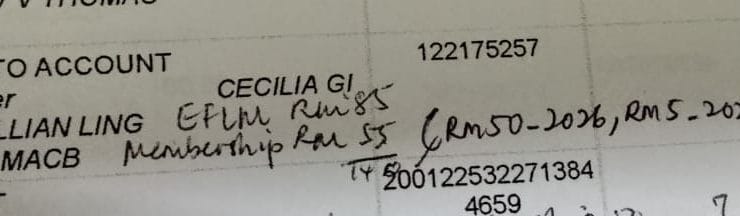 V THOMAS
TO ACCOUNT 122175257
er CECILIA GI
LLIAN LING EFLM RM 85
MACB Membership RM 55 (RM50-2026, RM5-202
200122532271384
4659 7